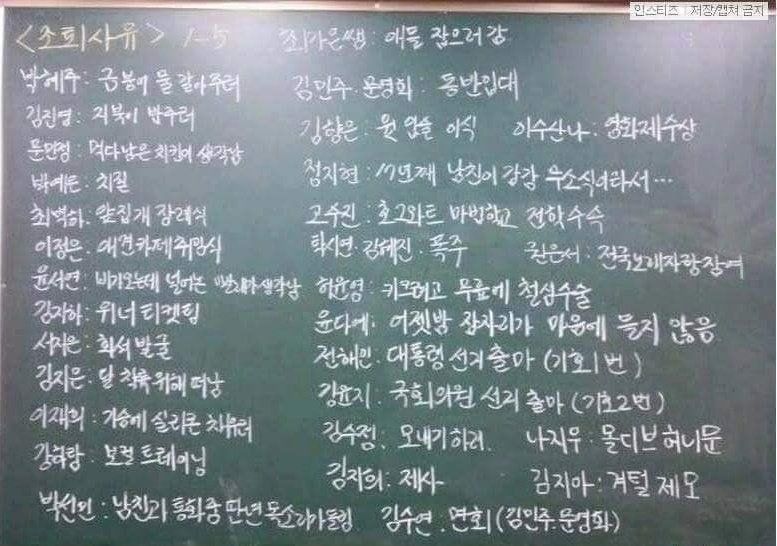 인스티즈 저장/캡쳐 금지
<조퇴사유> 1-5
최가은쌤: 애들 잡으러 감
박혜주: 금붕어 물 갈아주러
김진영: 거북이 밥주러
문민정: 먹다남은 치킨이 생각남
박예은: 치질
최벽하: 앞집개 장례식
이정은: 애견카페취임식
윤서연: 비가오는데 널어논 빨래가생각남
김지하: 위너 티켓팅
서지은: 화석 발굴
김지은: 달 착륙 위해 떠남
이재희: 가슴에 실리콘 채우러
강하랑: 보컬 트레이닝
박선민: 남친과 통화중 딴년 목소리가들림
김민주.문영화: 동반입대
김향은: 윗 입술 이식 이수산나: 영화제수상
정지현: 17년째 남친이 감감 무소식이라서...
고수진: 호그와트 마법학교 전학수속
탁시연. 김혜진: 폭주 권은서: 전국노래자랑참여
함윤영: 키크려고 무릎에 철심수술
윤다예: 어젯밤 잠자리가 마음에 들지 않음
전해인: 대통령 선거 출마 (기호1번)
김윤지: 국회의원 선거 출마 (기호2번)
김수정: 모내기하러. 나지우: 몰디브허니문
김지희: 제사 김지아: 겨털 제모
김수연. 면회 (김민주.문영화)